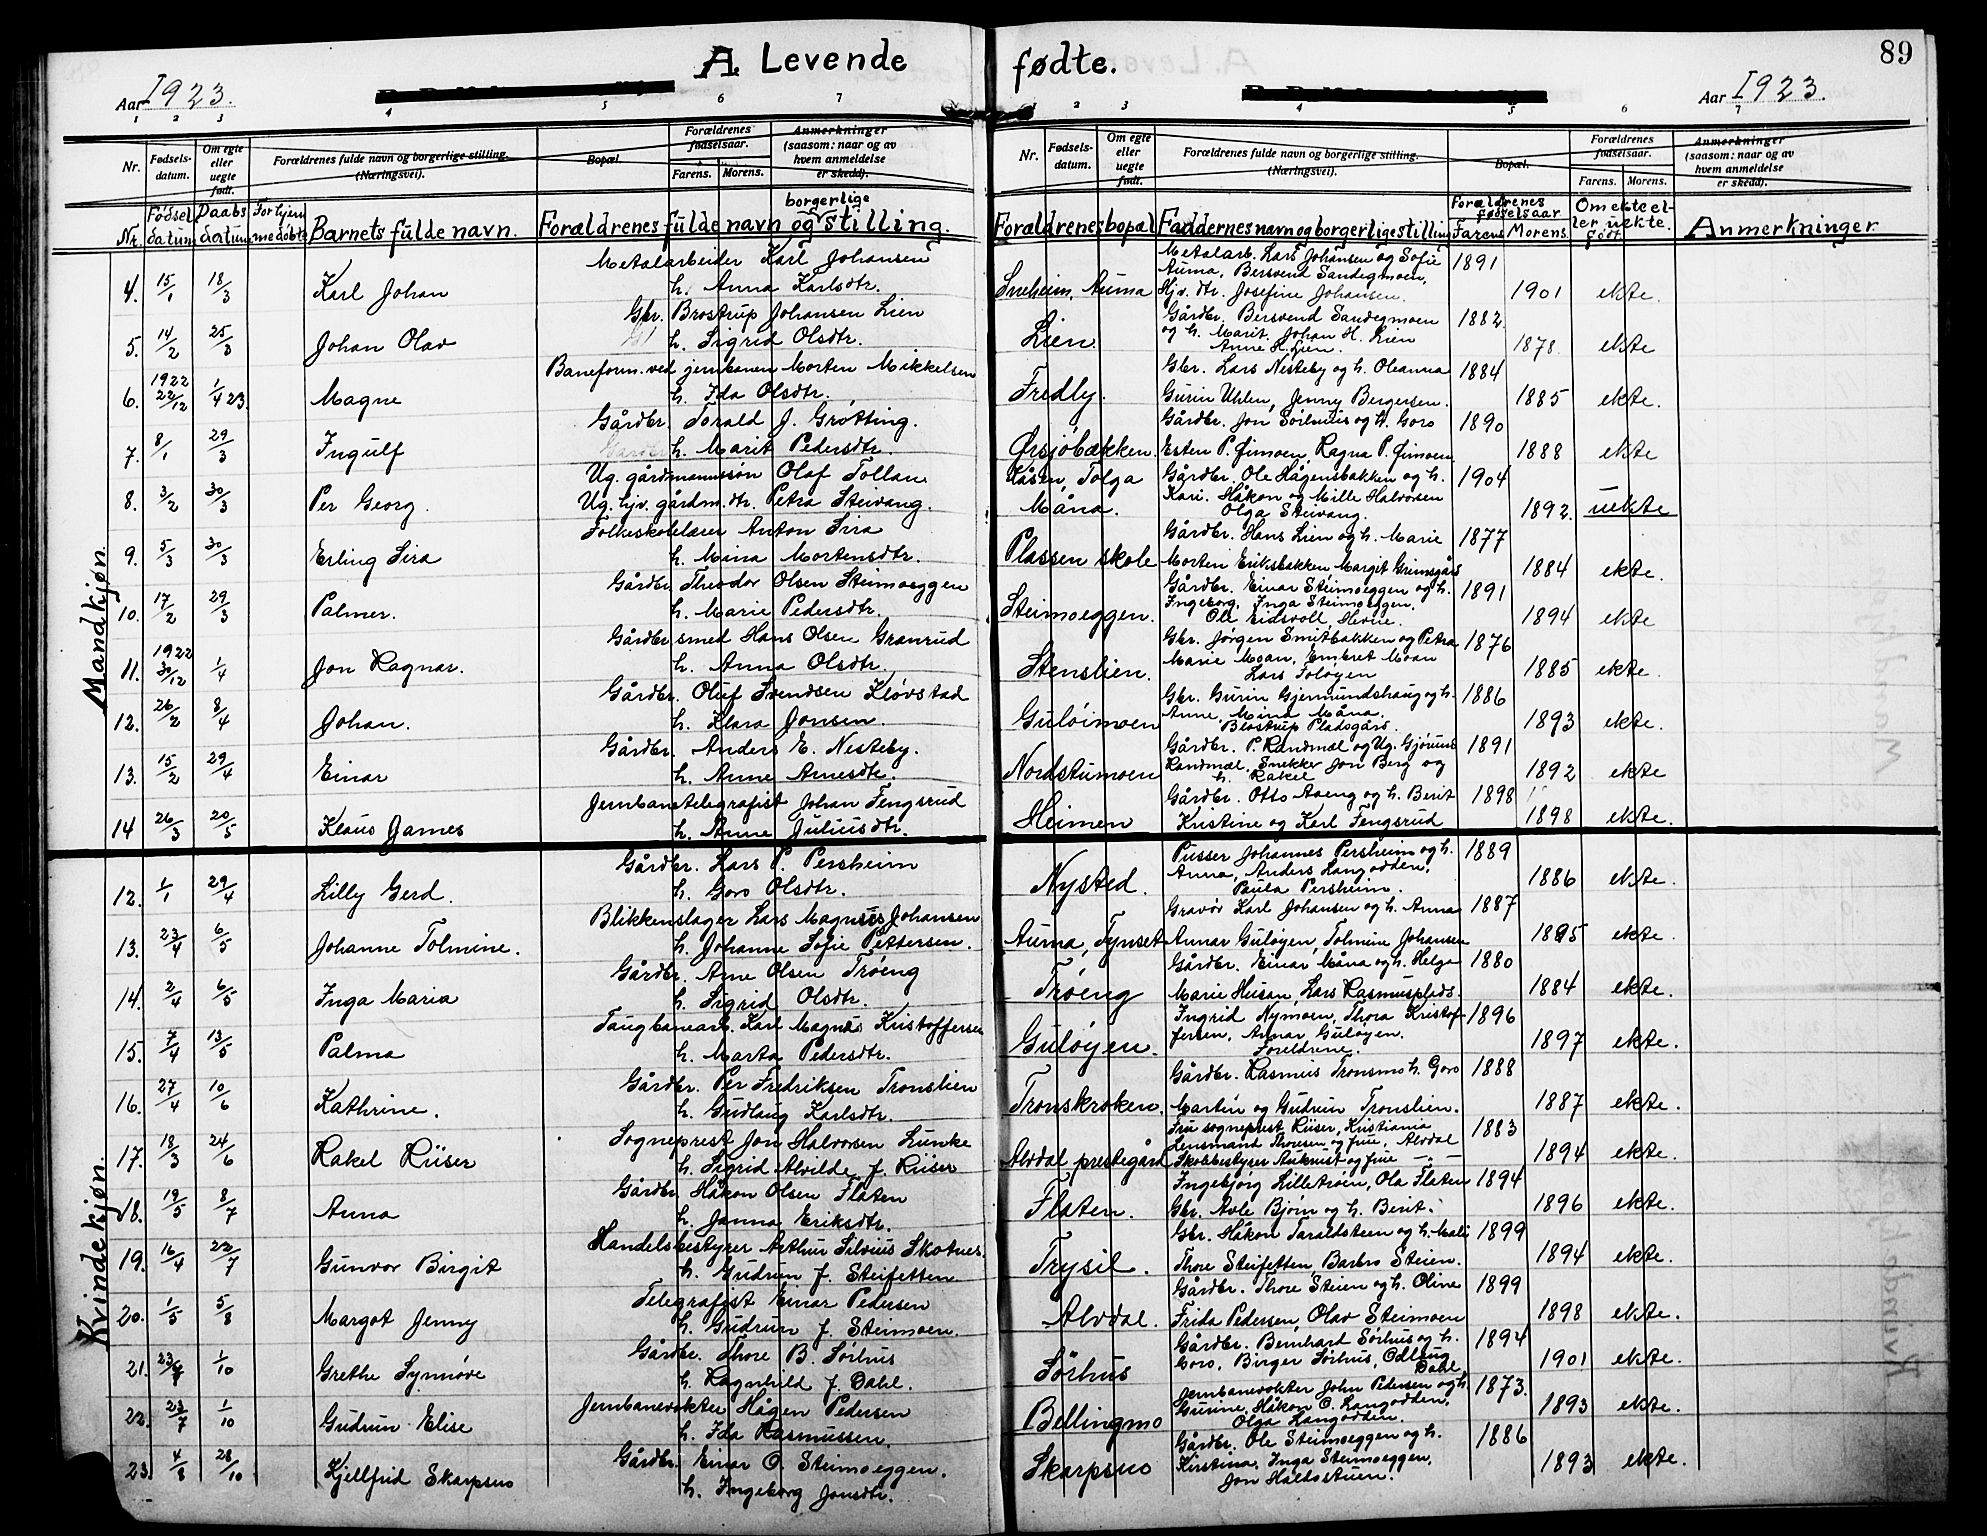 A. Levende fødte.
89
Aar 1923.
Aar 1923.
1 2 3 4 5 6 7
1 2 3 4 5 6 7
Nr. Fødsels-datum. Om egte eller uegte født. Forældrenes fulde navn og borgerlige stilling. (Næringsvei). Bopæl. Forældrenes fødselsaar. Farens. Morens. Anmerkninger (saasom: naar og av hvem anmeldelse er skedd).
Nr. Fødsels-datum. Om egte eller uegte født. Forældrenes fulde navn og borgerlige stilling. (Næringsvei). Bopæl. Forældrenes fødselsaar. Farens. Morens. Anmerkninger (saasom: naar og av hvem anmeldelse er skedd).
Nr. Fødsel datum Daabs datum For hjem medøbte Barnets fulde navn. Forældrenes fulde navn og borgerlige stilling. Forældrenes bopæl Faddernes navn og borgerlige stilling Forældrenes fødselsaar Farens Morens. Om ekte eller uekte født Anmerkninger
Mandkjøn.
4. 15/1 18/3 Karl Johan Metalarbeider Karl Johansen h. Anna Karlsdtr. Sneheim, Auma Metalarb. Lars Johansen og Sofie Auma, Bersvend Sandegmoen, Hjv. dtr. Josefine Johansen. 1891 1901 ekte.
5. 14/2 25/3 Johan Olav Gbr. Brostrup Johansen Lien h. Sigrid Olsdtr. Lien Gårdbr. Bersvend Sandegmoen og h. Marit. Johan H. Lien Anne H. Lien. 1882 1878. ekte
6. 1922 22/12 1/4 23. Magne Baneform. ved jernbanen Morten Mikkelsen h. Ida Olsdtr. Fredly. Gbr. Lars Nesteby og h. Oleanna Gurin Uhlen, Jenny Bergersen. 1884 1885 ekte.
7. 8/1 29/3 Ingulf Gårdbr. Torald J. Grøtting. h. Marit Pedersdtr. Ørsjøbækken. Gårdbr. Jon Sørhuus og h. Goro Esten P. Øimoen, Ragna P. Øimoen. 1890 1888 ekte
8. 3/2 30/3 Per Georg. Ug. gårdmannssøn Olaf Tollan Ug. hjv. gårdm. dtr. Petra Steivang. Låsen, Tolga Måna. Gårdbr. Ole Hågensbakken og h. Kari. Håkon og Mille Halvorsen Olga Steivang. 1904 1892. uekte
9. 5/3 30/3 Erling Sira Folkeskolelærer Anton Sira h. Mina Mortensdtr. Plassen skole Gårdbr. Hans Lien og h. Marie Morten Eriksbakken Margit Grimsgård 1877 1884 ekte.
10. 17/2 29/3 Palmer. Gårdbr. Theodor Olsen Steimoeggen h. Marie Pedersdtr. Steimoeggen. Gårdbr. Einar Steimoeggen og h. Ingeborg, Inga Steimoeggen. Ole Eidsvoll, Hevne. 1891 1894 ekte
11. 1922 30/12 1/4 Jon Ragnar. Gårdbr smed Hans Olsen Granrud h. Anna Olsdtr. Stenslien. Gbr. Jørgen Smitbakken og Petra Marie Moan, Embret Moan Lars Foløyen 1876 1885 ekte.
12. 26/2 8/4 Johan. Gårdbr. Oluf Svendsen Kløvstad h. Klara Jonsen. Guløimoen Gbr. Gurin Gjermundshaug og h. Anne, Mina Måna. Blostrup Pladsgård. 1886 1893 ekte.
13. 15/2 29/4 Einar Gårdbr. Anders E. Nesteby. h. Anne Arnesdtr. Nordstumoen Gårdbr. P. Randmæl og Ug. Gjørun Randmæl, Snekker Jon Berg og h. Rakel 1891 1892 ekte
14 26/3 20/5 Klaus James Jernbanetelegrafist Johan Fengsrud h. Anne Juliusdtr. Heimen Gårdbr. Otto Aaeng og h. Berit Kristine og Karl Fengsrud 1898 1898 ekte.
Kvindekjøn.
12. 1/1 29/4 Lilly Gerd. Gårdbr. Lars P. Persheim h. Goro Olsdtr. Nysted. Pusser Johannes Persheim og h. Anna, Anders Langodden, Paula Persheim. 1889 1886 ekte.
13. 23/4 6/5 Johanne Tolmine. Blikkenslager Lars Magnus Johansen h. Johanne Sofie Pettersen. Auma, Tynset Gravør Karl Johansen og h. Anna Annar Guløyen, Tolmine Johansen 1887 1895 ekte.
14. 2/4 6/5 Inga Maria Gårdbr. Arne Olsen Trøeng h. Sigrid Olsdtr. Trøeng Gårdbr. Einar Måna og h. Helga Marie Husan, Lars Rasmusplads. 1880 1884 ekte.
15. 7/4 13/5 Palma Taugbanearb. Karl Magnus Kristoffersen h. Marta Pedersdtr. Guløyen. Ingrid Nymoen, Thora Kristoffersen, Annar Guløyen. Foreldrene. 1896 1897 ekte.
16. 27/4 10/6 Kathrine. Gårdbr. Per Fredriksen Tronslien h. Gudlaug Karlsdtr. Tronskroken. Gårdbr. Rasmus Tronsmo h. Goro Martin og Gudrun Tronslien. 1888 1887 ekte.
17. 18/3 24/6 Rakel Riiser Sogneprest Jon Halvorsen Lunke h. Sigrid Alvilde f. Riiser Alvdal prestegård Fru sogneprest Riiser, Kristiania Lensmand Thoresen og frue, Alvdal Skolebestyrer Aukrust og frue — " — 1883 1894 ekte.
18. 19/5 8/7 Anna Gårdbr. Håkon Olsen Flaten h. Janna Eriksdtr. Flaten. Ingebjørg Lilletrøen, Ola Flaten Gbr. Avle Bjørn og h. Berit. 1894 1896 ekte.
19. 16/4 22/7 Gunvor Birgit Handelsbestyrer Arthur Silvius Skotnes. h. Gudrun f. Steifetten Trysil. Gbr. Håkon Taraldsteen og h. Mali Thore Steifetten, Barbro Steien. 1899 1894 ekte.
20. 1/5 5/8 Margot Jenny Telegrafist Einar Pedersen h. Gudrun f. Steimoen. Alvdal. Gårdbr. Thore Steien og h. Oline Frida Pedersen, Olav Steimoen 1899 1898 ekte.
21. 23/7 1/10 Grethe Synnøve Gårdbr. Thore B. Sørhus h. Ragnhild f. Dahl. Sørhus Gårdbr. Bernhard Sørhus og h. Goro, Birger Sørhus, Odlaug Dahl. 1894 1901 ekte.
22. 23/7 1/10 Gudrun Elise Jernbanevokter Hågen Pedersen h. Ida Rasmussen. Bellingmo Jernbanevokter John Pedersen og h. Gurine, Håkon O. Langodden, Olga Langodden. 1873. 1893 ekte.
23. 4/8 28/10 Kjellfrid Skarpsno Gårdbr. Einar O. Steimoeggen. h. Ingeborg Jonsdtr. Skarpsno Gårdbr. Ole Steimoeggen og h. Kirstina, Inga Steimoeggen, Jon Haldostuen. 1886 1893 ekte.